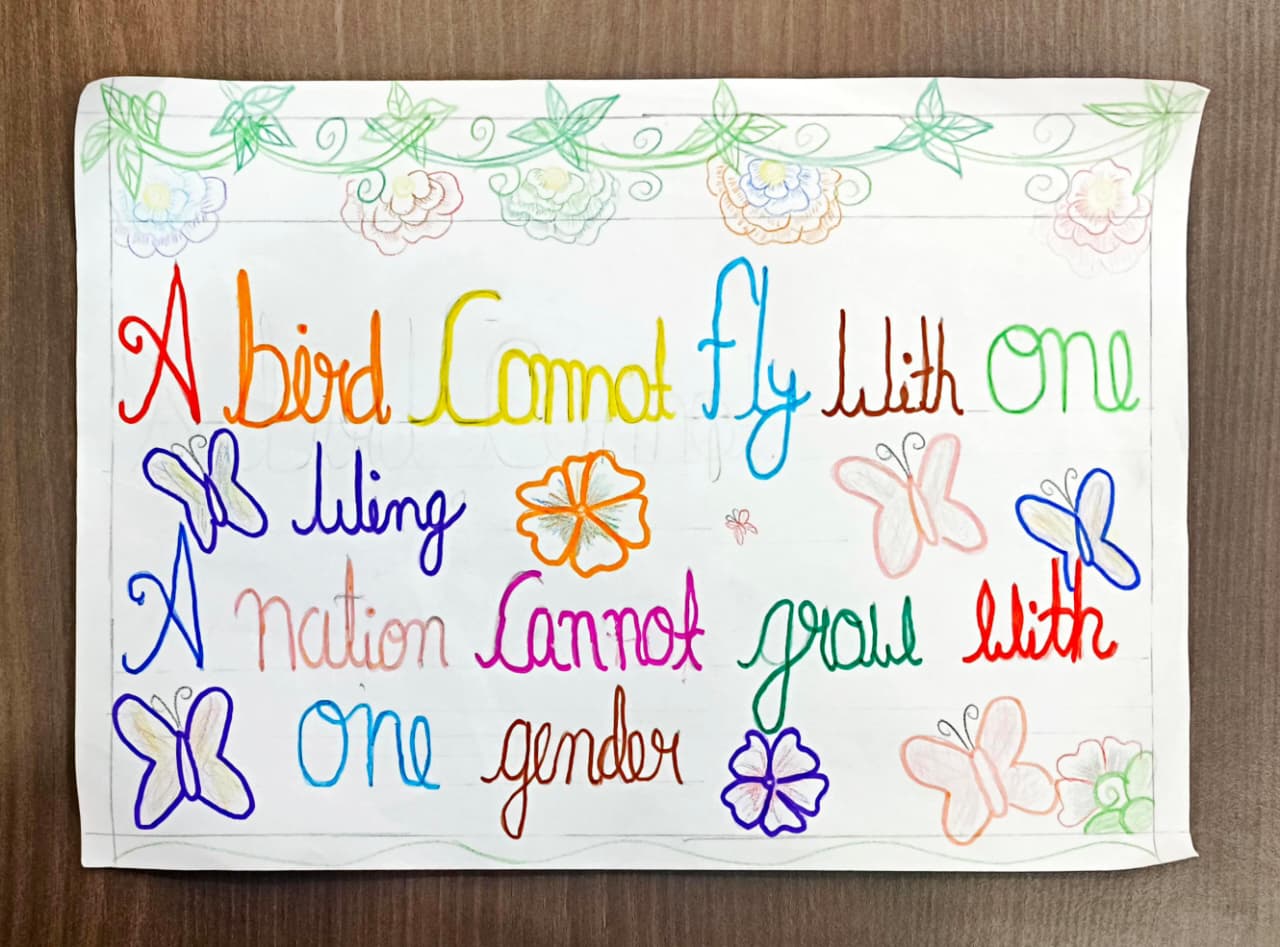 A bird Cannot fly With one
Wing
A nation Cannot grow With
one gender